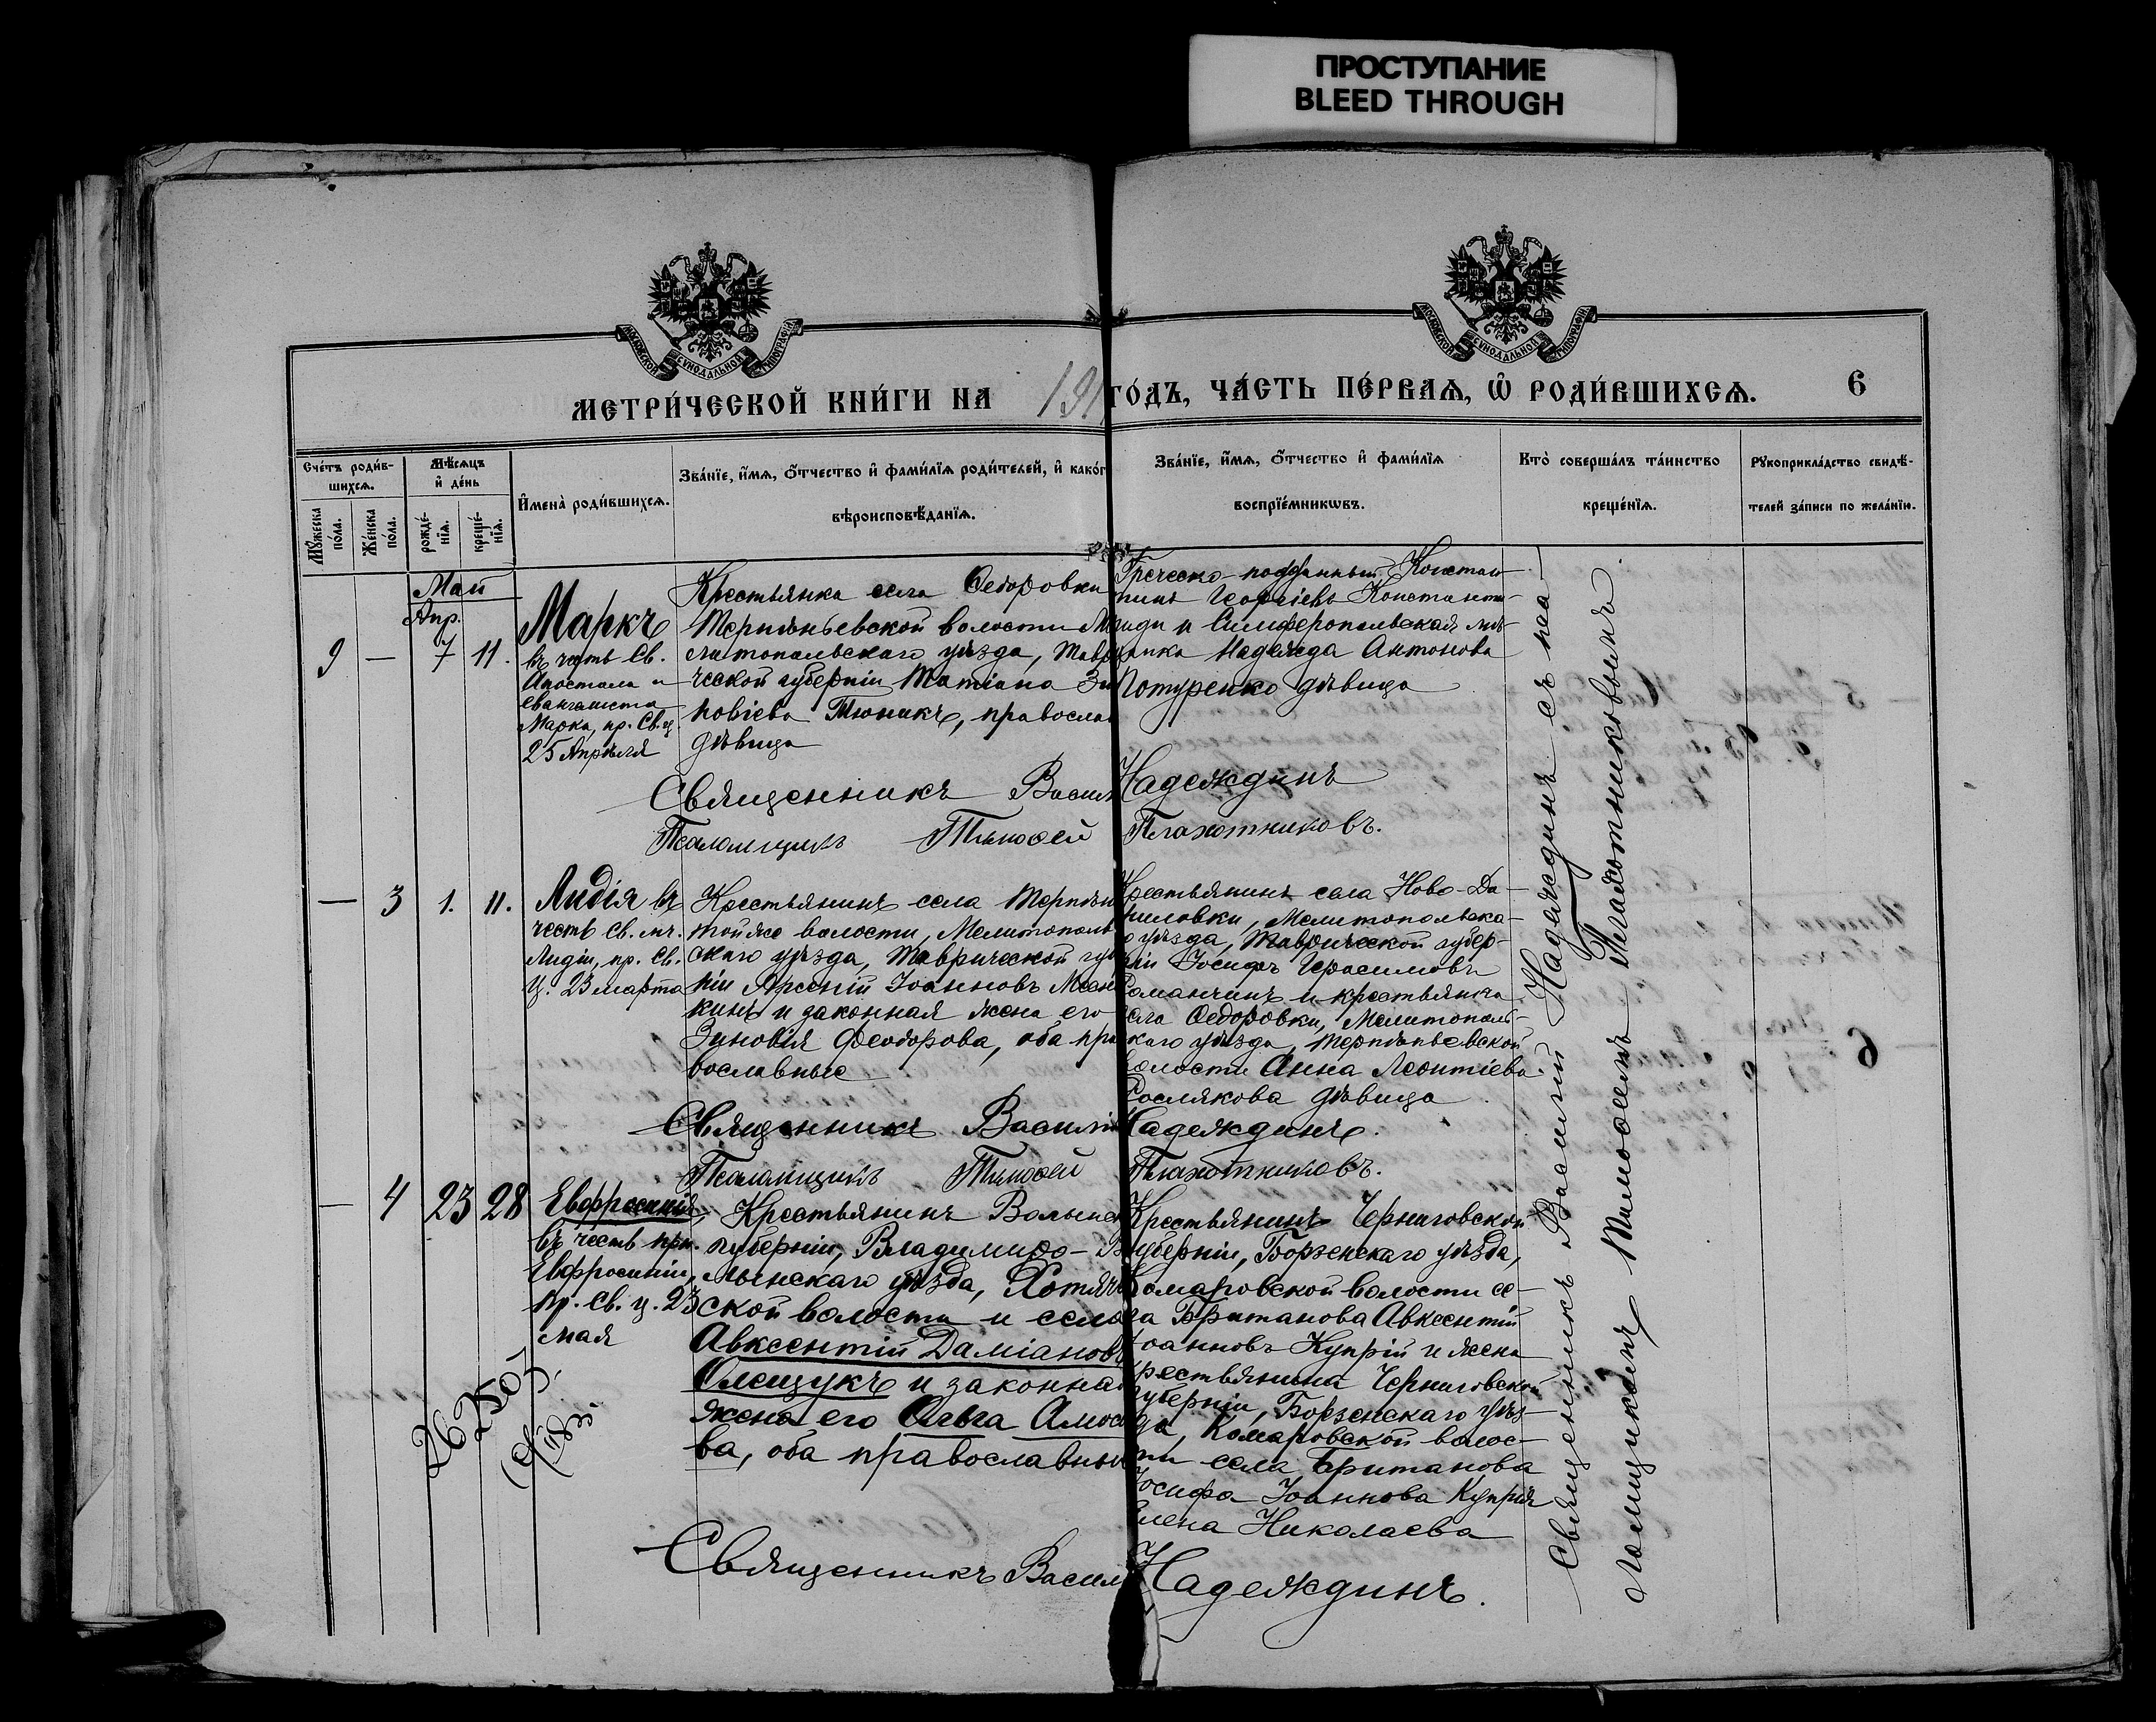 ПРОСТУПАНИЕ
BLEED THROUGH
МОСКОВСКОЙ СѴНОДАЛЬНОЙ ТИПОГРАФІИ
МОСКОВСКОЙ СѴНОДАЛЬНОЙ ТИПОГРАФІИ
МЕТРИ́ЧЕСКОЙ КНИ́ГИ НА 191 ГО́ДЪ, ЧА́СТЬ ПЕ́РВАѦ, Ѽ РОДИ́ВШИХСѦ. 6
Сче́тъ роди́в-
шихсѧ.
Мꙋ́жеска
по́ла.
Же́нска
по́ла.
Мѣ́сѧцъ
и҆ де́нь
рожде́-
нїѧ.
креще́-
нїѧ.
И҆мена̀ роди́вшихсѧ.
Зва́нїе, и҆́мѧ, ѻ҆́тчество и҆ фами́лїѧ роди́телей, и҆ како́г
вѣроисповѣ́данїѧ.
Зва́нїе, и҆́мѧ, ѻ҆́тчество и҆ фами́лїѧ
воспрїе́мникѡвъ.
Кто̀ соверша́лъ та́инство
креще́нїѧ.
Рꙋкоприкла́дство свидѣ́-
телей за́писи по жела́нїю.
Май
Апр.
9 — 7 11.
Маркъ
въ честь Св.
Апостола и
Евангелиста
Марка, пр. Св. ц.
25 Апрѣля
Крестьянка села Ѳедоровки
Терпѣньевской волости Ме
литопольскаго уѣзда, Тавр
ческой губерніи Татіана Зи
новіева Тюникъ, правосла
дѣвица
Греческо-подданный Констан
тинъ Георгіевъ Константи-
ниди и Симферопольская мѣ-
щанка Надежда Антонова
Потуренко дѣвица
Священникъ Васил Надеждинъ
Псаломщикъ Тимоѳей Плахотниковъ.
— 3 1. 11.
Лидія въ
честь св. мч.
Лидіи, пр. Св.
Ц. 23 марта
Крестьянинъ села Терпѣн
той же волости, Мелитополь
скаго уѣзда, Таврической губ
ніи Арсеній Іоанновъ Мсен
кинъ и законная жена его
Зиновія Ѳеодорова, оба пра
вославные
Крестьянинъ села Ново-Да-
ниловки, Мелитопольска-
о уѣзда, Таврической губер-
ніи Іосифъ Герасимовъ
Романчинъ и крестьянка
села Ѳедоровки, Мелитополь-
скаго уѣзда, Терпѣньевской
волости Анна Леонтіева
Рослякова дѣвица
Священникъ Василій Надеждинъ.
Псаломщикъ Тимоѳей Плахотниковъ.
— 4 23 28
Евфросинія,
въ честь прп.
Евфросиніи,
пр. Св. ц. 23
мая
Крестьянинъ Волынс
губерніи, Владимиро-В
лынскаго уѣзда, Хотяч
ской волости и села
Авксентій Даміановъ
Олещукъ и законная
жена его Ольга Амосо
ва, оба православны
Крестьянинъ Черниговской
губерніи, Борзенскаго уѣзда,
Комаровской волости се-
ла Британова Авксентій
Іоанновъ Купрій и жена
крестьянина Черниговской
губерніи, Борзенскаго уѣз-
да, Комаровской волос-
ти села Британова
Іосифа Іоаннова Купрія
Елена Николаева
26250
Священникъ Васил Надеждинъ.
Священникъ Василій Надеждинъ съ пса-
ломщикомъ Тимоѳеемъ Плахотниковымъ.